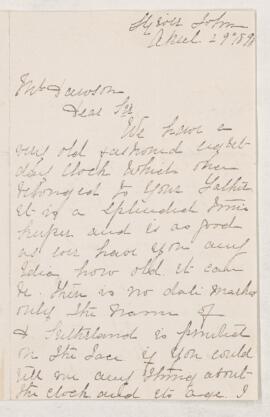 River John
April 29th 189
Mr Dawson
Dear Sir
We have a
very old fashioned eight
day clock which once
belonged to your Father
it is a splendid time
keeper and is as good
as ever have you any
idea how old it can
be. there is no date marked
only the name of
Sutherland is printed
on the face if you could
tell me any thing about
the clock and its age I